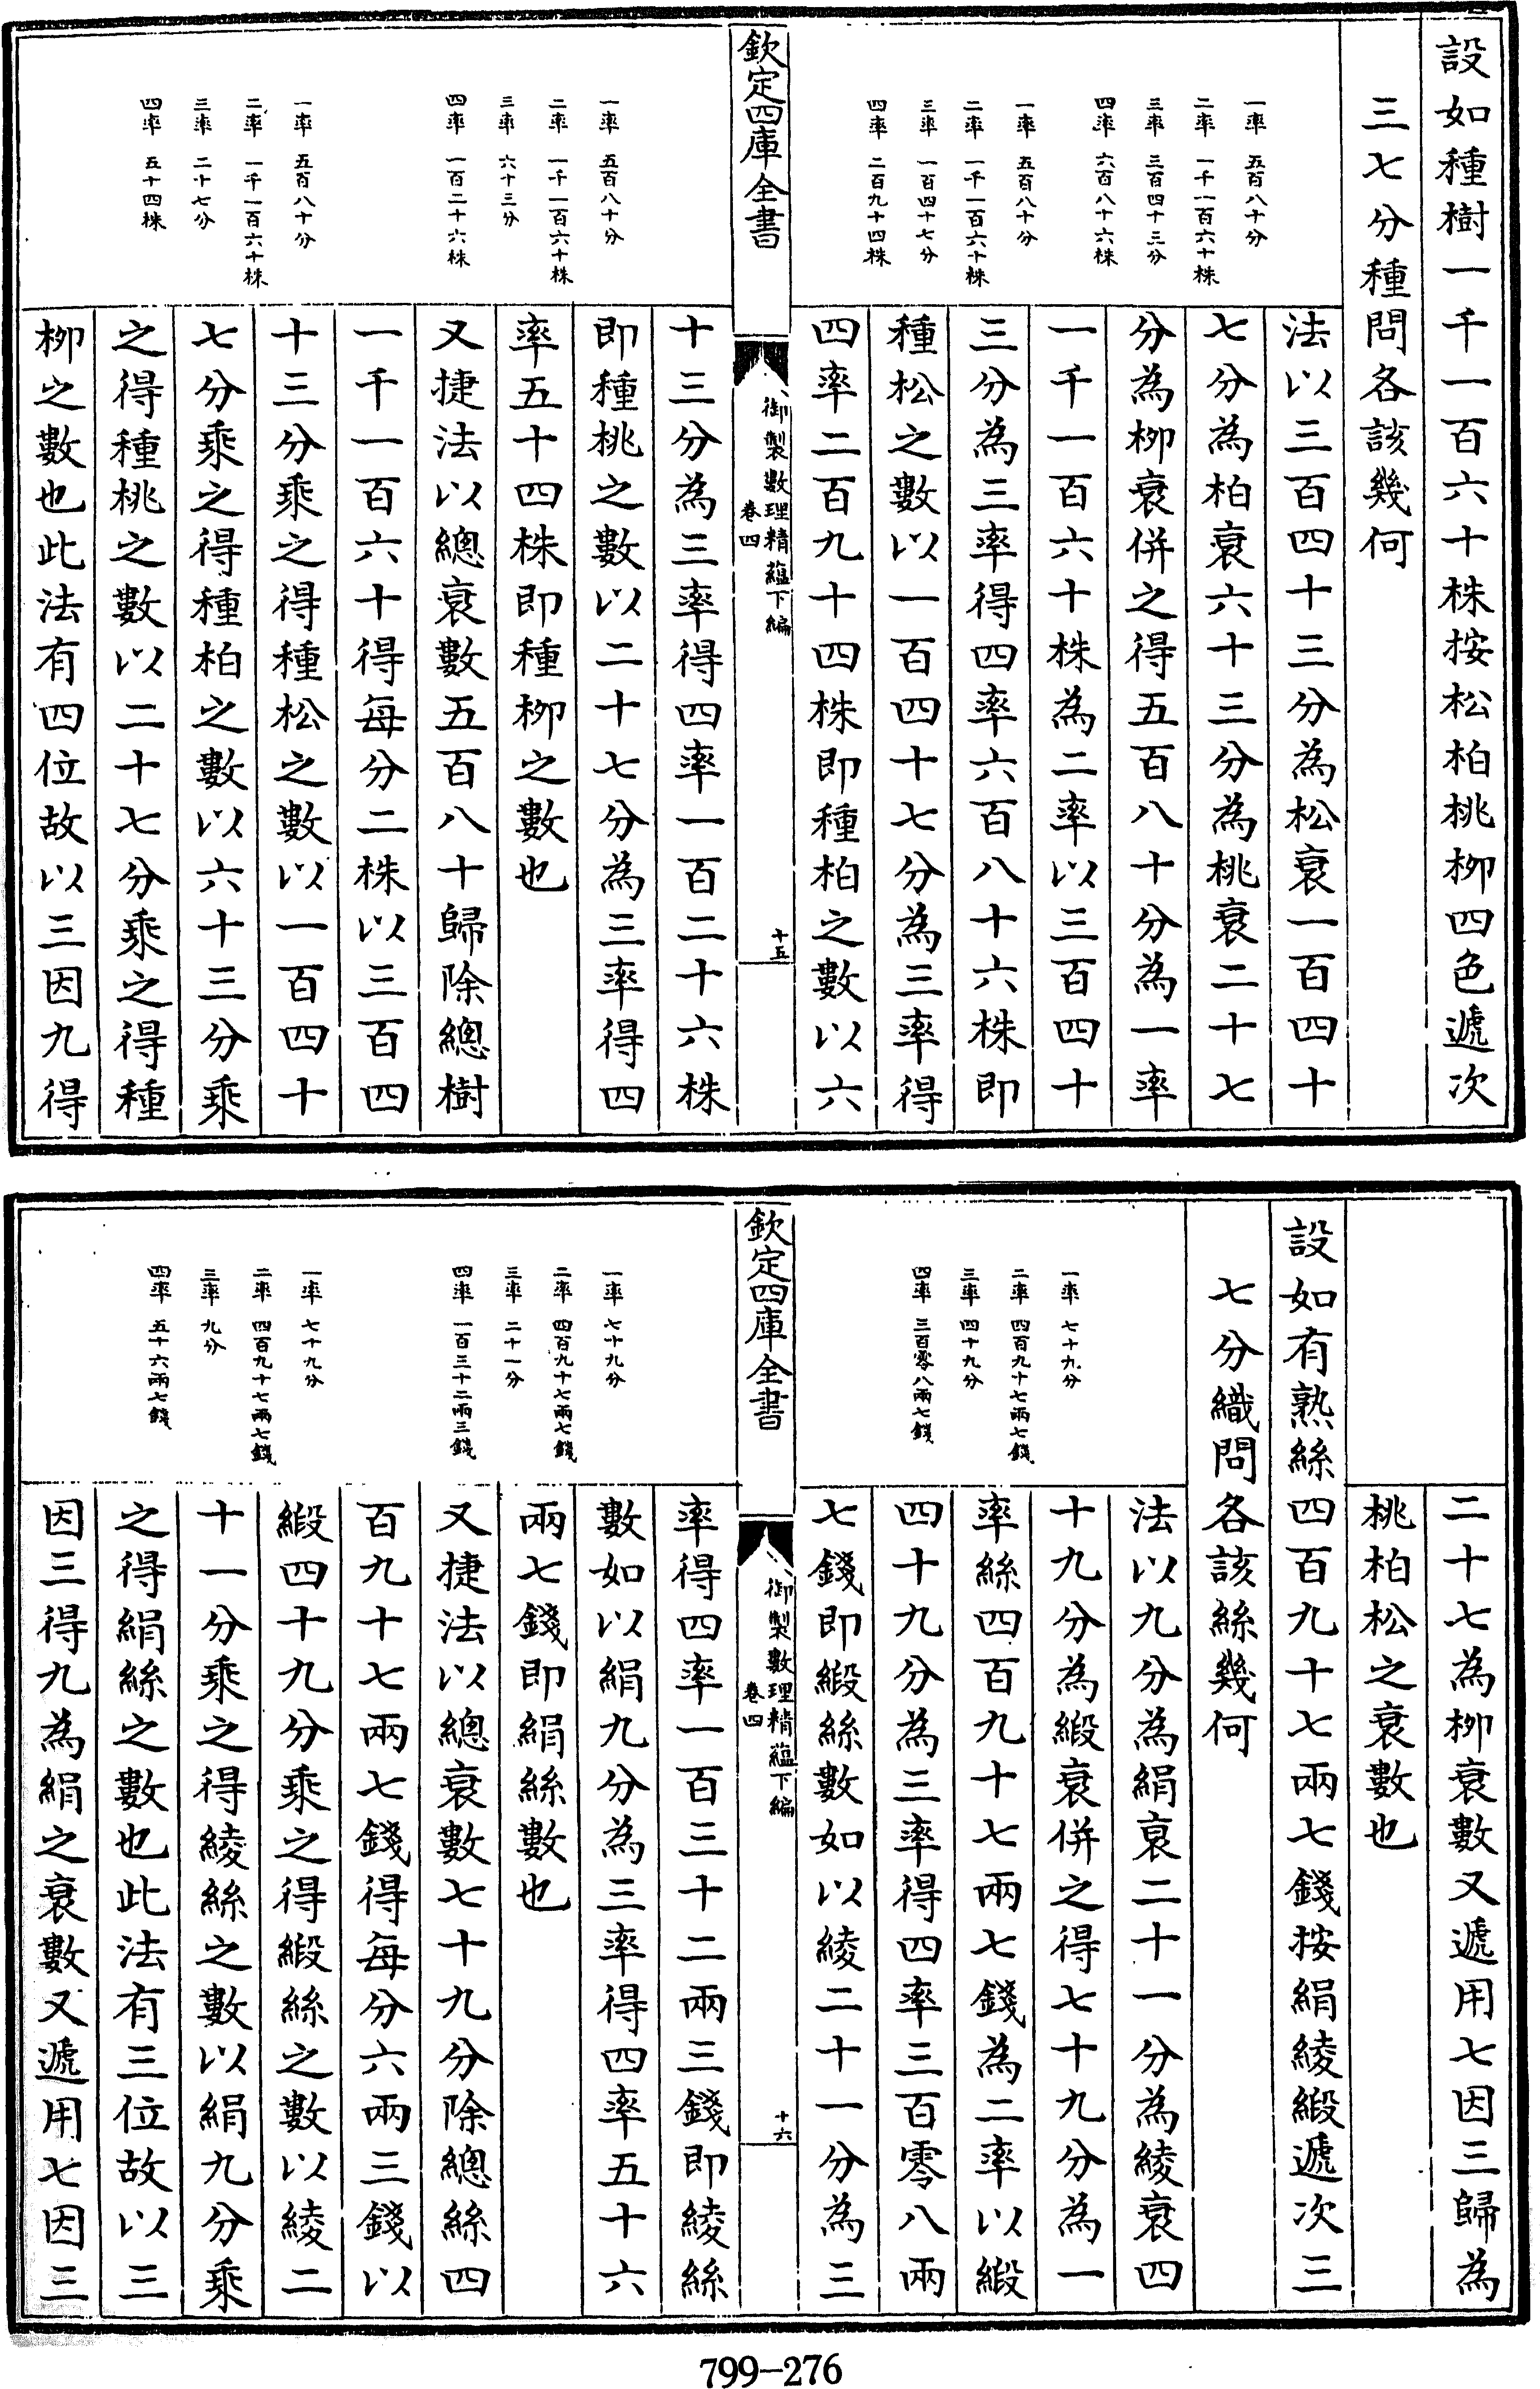 設如種樹一千一百六十株按松柏桃柳四色遞次
三七分種問各該幾何
一率　五百八十分
二率　一千一百六十株
三率　三百四十三分
四率　六百八十六株
一率　五百八十分
二率　一千一百六十株
三率　一百四十七分
四率　二百九十四株
法以三百四十三分為松衰一百四十
七分為柏衰六十三分為桃衰二十七
分為柳衰併之得五百八十分為一率
一千一百六十株為二率以三百四十
三分為三率得四率六百八十六株即
種松之數以一百四十七分為三率得
四率二百九十四株即種柏之數以六
欽定四庫全書
御製數理精蘊下編
卷四
十五
一率　五百八十分
二率　一千一百六十株
三率　六十三分
四率　一百二十六株
一率　五百八十分
二率　一千一百六十株
三率　二十七分
四率　五十四株
十三分為三率得四率一百二十六株
即種桃之數以二十七分為三率得四
率五十四株即種柳之數也
又捷法以總衰數五百八十歸除總樹
一千一百六十得每分二株以三百四
十三分乘之得種松之數以一百四十
七分乘之得種柏之數以六十三分乘
之得種桃之數以二十七分乘之得種
柳之數也此法有四位故以三因九得
二十七為柳衰數又遞用七因三歸為
桃柏松之衰數也
設如有熟絲四百九十七兩七錢按絹綾緞遞次三
七分織問各該絲幾何
一率　七十九分
二率　四百九十七兩七錢
三率　四十九分
四率　三百零八兩七錢
法以九分為絹衰二十一分為綾衰四
十九分為緞衰併之得七十九分為一
率絲四百九十七兩七錢為二率以緞
四十九分為三率得四率三百零八兩
七錢即緞絲數如以綾二十一分為三
欽定四庫全書
御製數理精蘊下編
卷四
十六
一率　七十九分
二率　四百九十七兩七錢
三率　二十一分
四率　一百三十二兩三錢
一率　七十九分
二率　四百九十七兩七錢
三率　九分
四率　五十六兩七錢
率得四率一百三十二兩三錢即綾絲
數如以絹九分為三率得四率五十六
兩七錢即絹絲數也
又捷法以總衰數七十九分除總絲四
百九十七兩七錢得每分六兩三錢以
緞四十九分乘之得緞絲之數以綾二
十一分乘之得綾絲之數以絹九分乘
之得絹絲之數也此法有三位故以三
因三得九為絹之衰數又遞用七因三
799-276